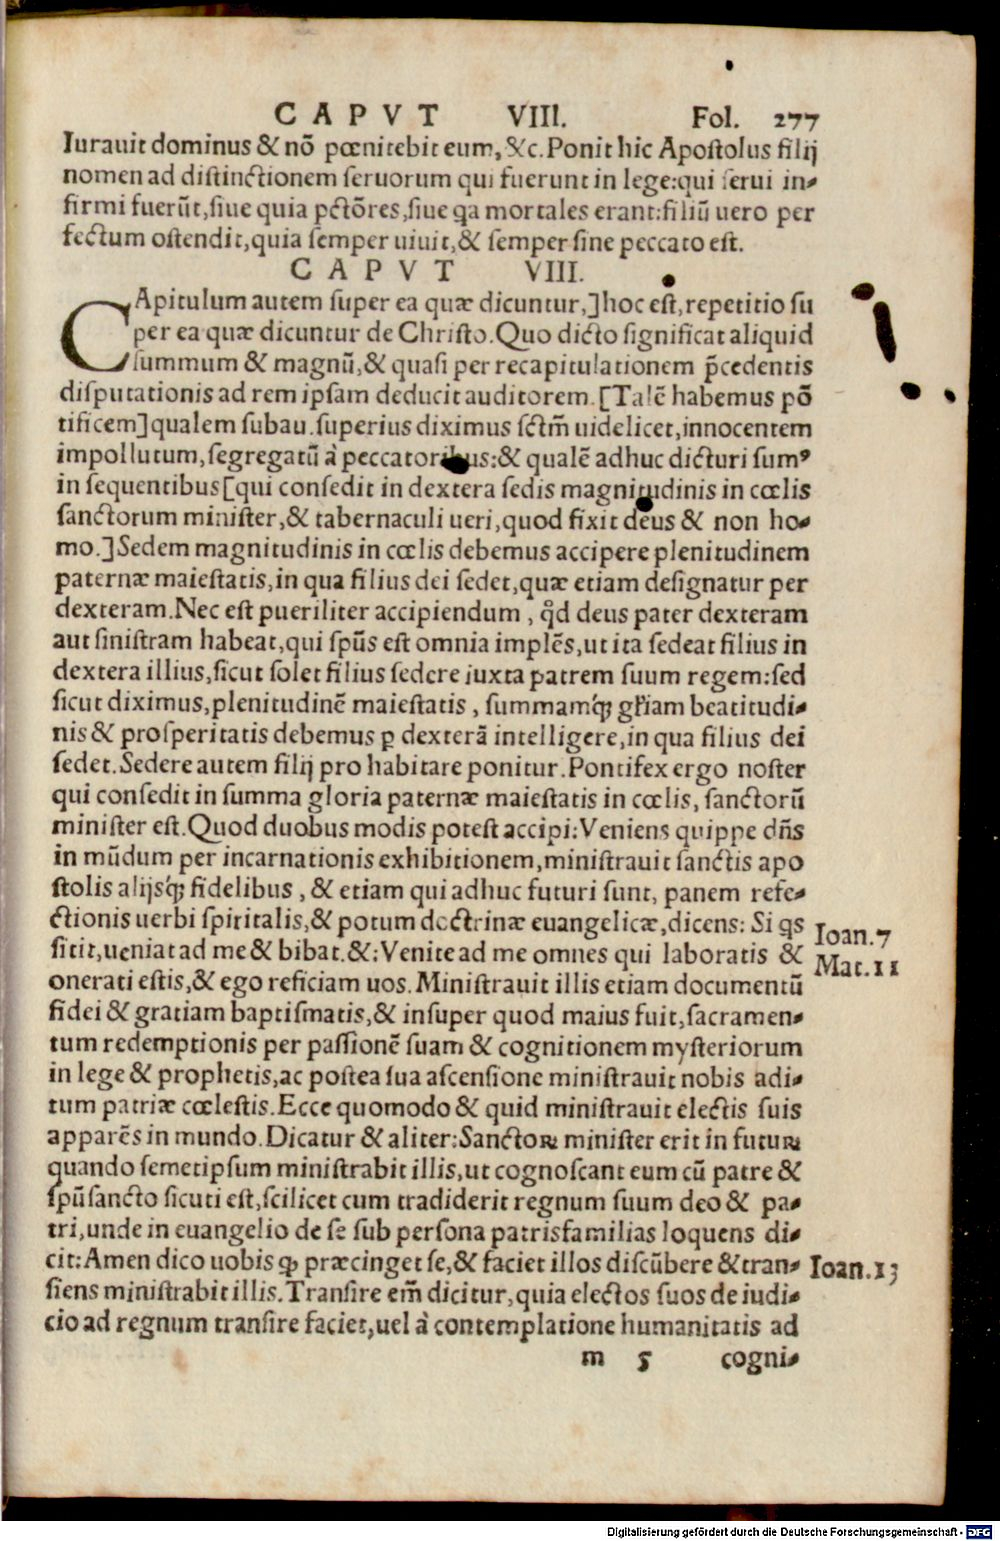 CAPVT VIII. Fol. 277
Iurauit dominus & nõ pœnitebit eum, &c. Ponit hic Apostolus filij
nomen ad distinctionem seruorum qui fuerunt in lege: qui serui in-
firmi fuerũt, siue quia pctõres, siue ꝗa mortales erant: filiũ uero per
fectum ostendit, quia semper uiuit, & semper sine peccato est.
CAPVT VIII.
CApitulum autem super ea quæ dicuntur,] hoc est, repetitio su
per ea quæ dicuntur de Christo. Quo dicto significat aliquid
summum & magnũ, & quasi per recapitulationem p̃cedentis
disputationis ad rem ipsam deducit auditorem. [Talẽ habemus põ
tificem] qualem subau. superius diximus sctm̃ uidelicet, innocentem
impollutum, segregatũ à peccatoribus: & qualẽ adhuc dicturi sumꝰ
in sequentibus [qui consedit in dextera sedis magnitudinis in cœlis
sanctorum minister, & tabernaculi ueri, quod fixit deus & non ho-
mo.] Sedem magnitudinis in cœlis debemus accipere plenitudinem
paternæ maiestatis, in qua filius dei sedet, quæ etiam designatur per
dexteram. Nec est pueriliter accipiendum, ꝙd deus pater dexteram
aut sinistram habeat, qui spũs est omnia implẽs, ut ita sedeat filius in
dextera illius, sicut solet filius sedere iuxta patrem suum regem: sed
sicut diximus, plenitudinẽ maiestatis, summamq́ꝫ gl̃iam beatitudi-
nis & prosperitatis debemus ꝑ dexterã intelligere, in qua filius dei
sedet. Sedere autem filij pro habitare ponitur. Pontifex ergo noster
qui consedit in summa gloria paternæ maiestatis in cœlis, sanctorũ
minister est. Quod duobus modis potest accipi: Veniens quippe dñs
in mũdum per incarnationis exhibitionem, ministrauit sanctis apo
stolis alijsq́ꝫ fidelibus, & etiam qui adhuc futuri sunt, panem refe-
ctionis uerbi spiritalis, & potum doctrinæ euangelicæ, dicens: Si ꝗs
sitit, ueniat ad me & bibat. &: Venite ad me omnes qui laboratis &
onerati estis, & ego reficiam uos. Ministrauit illis etiam documentũ
fidei & gratiam baptismatis, & insuper quod maius fuit, sacramen-
tum redemptionis per passionẽ suam & cognitionem mysteriorum
in lege & prophetis, ac postea sua ascensione ministrauit nobis adi-
tum patriæ cœlestis. Ecce quomodo & quid ministrauit electis suis
apparẽs in mundo. Dicatur & aliter: Sanctoꝝ minister erit in futuꝝ
quando semetipsum ministrabit illis, ut cognoscant eum cũ patre &
spũsancto sicuti est, scilicet cum tradiderit regnum suum deo & pa-
tri, unde in euangelio de se sub persona patrisfamilias loquens di-
cit: Amen dico uobis ꝙ præcinget se, & faciet illos discũbere & tran-
siens ministrabit illis. Transire em̃ dicitur, quia electos suos de iudi-
cio ad regnum transire faciet, uel à contemplatione humanitatis ad
m 5 cogni-
Ioan. 7
Mat. 11
Ioan. 13
Digitalisierung gefördert durch die Deutsche Forschungsgemeinschaft - DFG